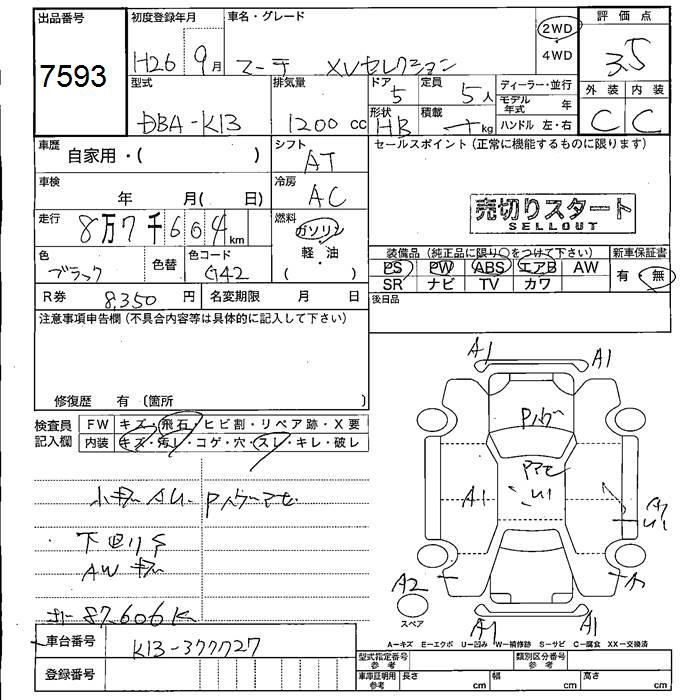 出品番号 初度登録年月 車名・グレード 評価点
7593 H26 9月 マーチ XVセレクション 2WD 4WD 3.5
型式 排気量 ドア 定員 ディーラー・並行 外装 内装
DBA-K13 1200cc 5 5人 モデル年式 年 C C
形状 積載 ハンドル 左・右
HB kg
車歴 自家用・( ) シフト AT セールスポイント(正常に機能するものに限ります)
車検 年 月( 日) 冷房 AC
売切りスタート
SELLOUT
走行 8万7千604km 燃料 ガソリン 軽・油 ( )
色 ブラック 色替 色コード G42
装備品(純正品に限り○をつけて下さい) 新車保証書
PS PW ABS エアB AW 有・無
SR ナビ TV カワ
R券 8,350円 名変期限 月 日 後日品
注意事項申告欄(不具合内容等は具体的に記入して下さい)
修復歴 有〔箇所 〕
検査員記入欄 FW キズ・飛石・ヒビ割・リペア跡・X要
内装 キズ・汚レ・コゲ・穴・スレ・キレ・破レ
下回りS
AWキズ
87,606K
車台番号 K13-377727
登録番号
A1 A1
A1
A2
スペア
A1 A1
A=キズ E=エクボ U=凹み W=補修跡 S=サビ C=腐食 XX=交換済
型式指定番号 参考 類別区分番号 参考
車庫証明用 参考 長さ cm 幅 cm 高さ cm